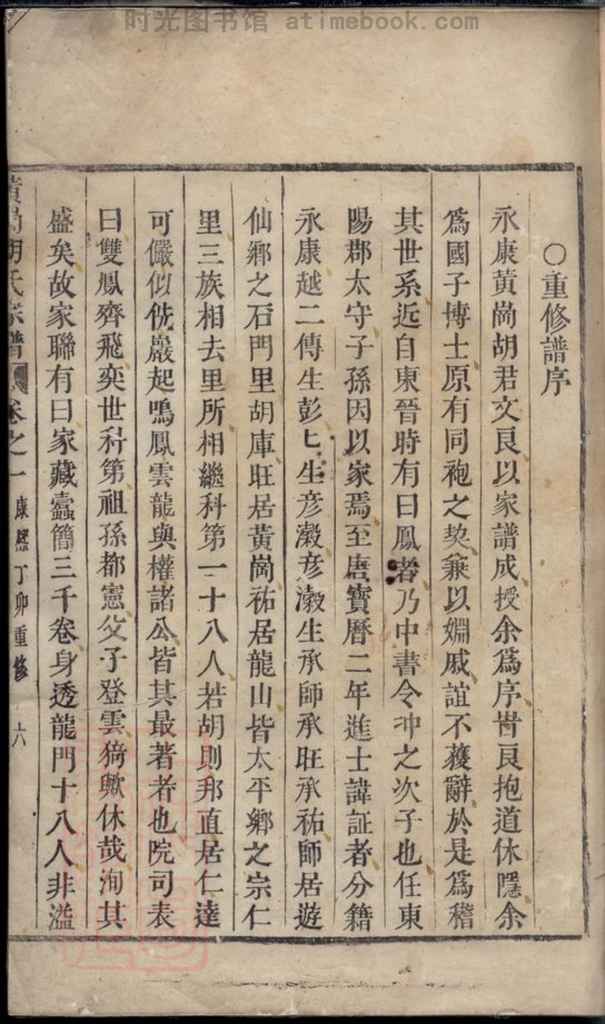 时光图书馆 atimebook.com
〇重修譜序
永康黃崗胡君文良以家譜成授余爲序昔良抱道休隱余
爲國子博士原有同袍之契兼以婣戚誼不獲辭於是爲稽
其世系近自東晉時有曰鳳者乃中書令冲之次子也任東
陽郡太守子孫因以家焉至唐寶曆二年進士諱証者分籍
永康越二傳生彭匕生彦瀫彦瀫生承師承旺承祐師居遊
仙鄉之石門里胡庫旺居黃崗祐居龍山皆太平鄉之宗仁
里三族相去里所相繼科第一十八人若胡則邦直居仁達
可儼似侁巖起鳴鳳雲龍與權諸公皆其最著者也院司表
曰雙鳳齊飛奕世科第祖孫都憲父子登雲猗歟休哉洵其
盛矣故家聯有曰家藏蠹簡三千卷身透龍門十八人非濫
黃崗胡氏家譜 卷之一 康熙丁卯重修 六